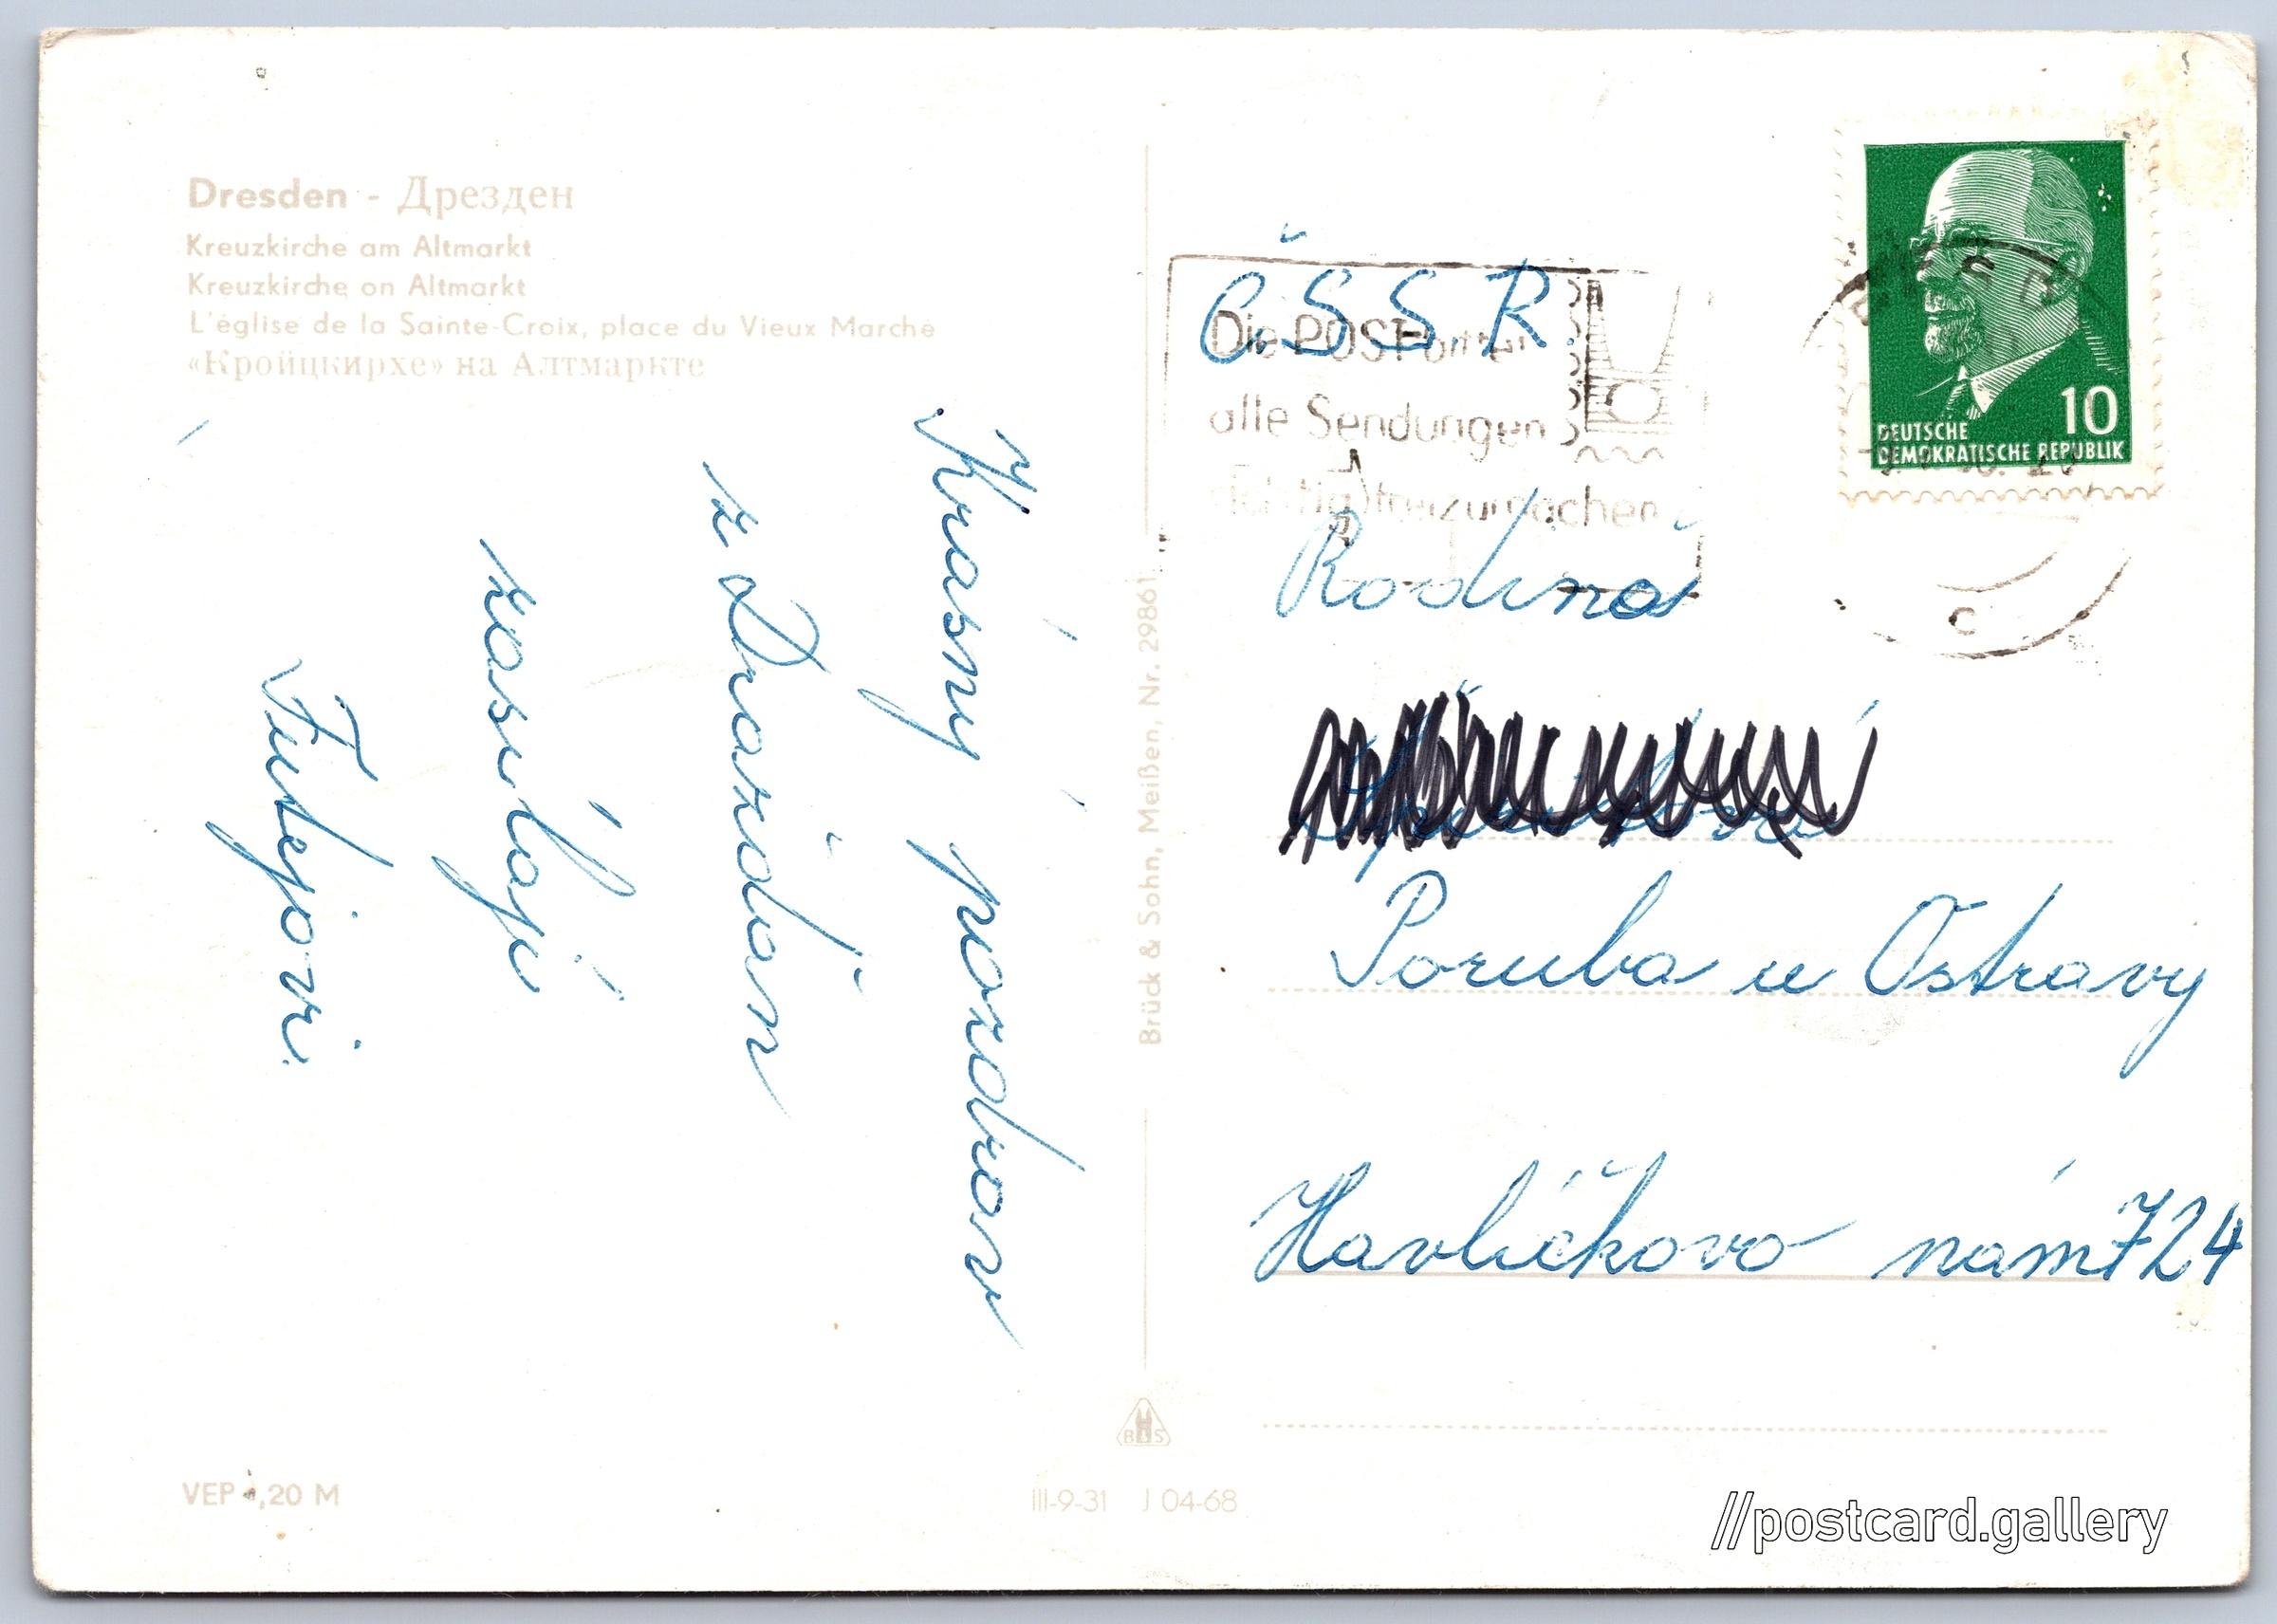 Dresden - Дрезден
Kreuzkirche am Altmarkt
Kreuzkirche on Altmarkt
L'église de la Sainte-Croix, place du Vieux Marché
«Кройцкирхе» на Алтмаркте
Krásný pozdrav
z Drážďan
zasílají
Fulejovi.
Brück & Sohn, Meißen, Nr. 29861
B&S
VEP ,20 M
III-9-31 J 04-68
ČSSR
Die POST
alle Sendungen
freizumachen
10
DEUTSCHE
DEMOKRATISCHE REPUBLIK
C
Rodina
Poruba u Ostravy
Havlíčkovo nám 724
//postcard.gallery